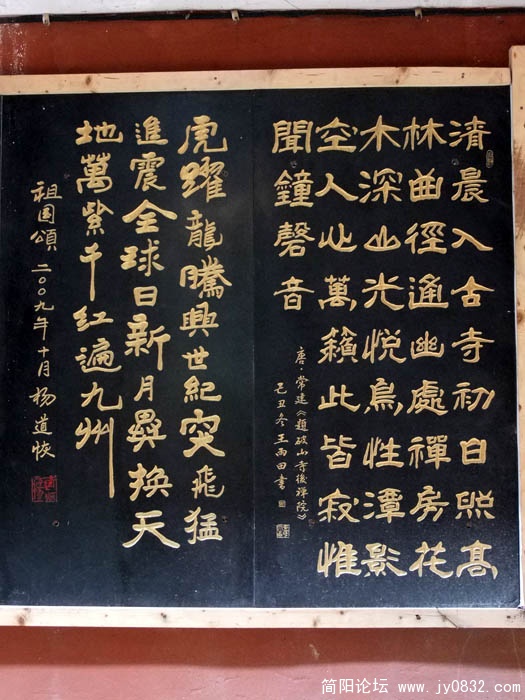 清晨入古寺初日照高
林曲徑通幽處禪房花
木深山光悅鳥性潭影
空人心萬籟此皆寂惟
聞鐘磬音
唐·常建《題破山寺後禪院》
己丑冬王雨田書
虎躍龍騰興世紀突飛猛
進震全球日新月異換天
地萬紫千红遍九州
祖国頌二〇〇九年十月杨道恢
简阳论坛 www.jy0832.com